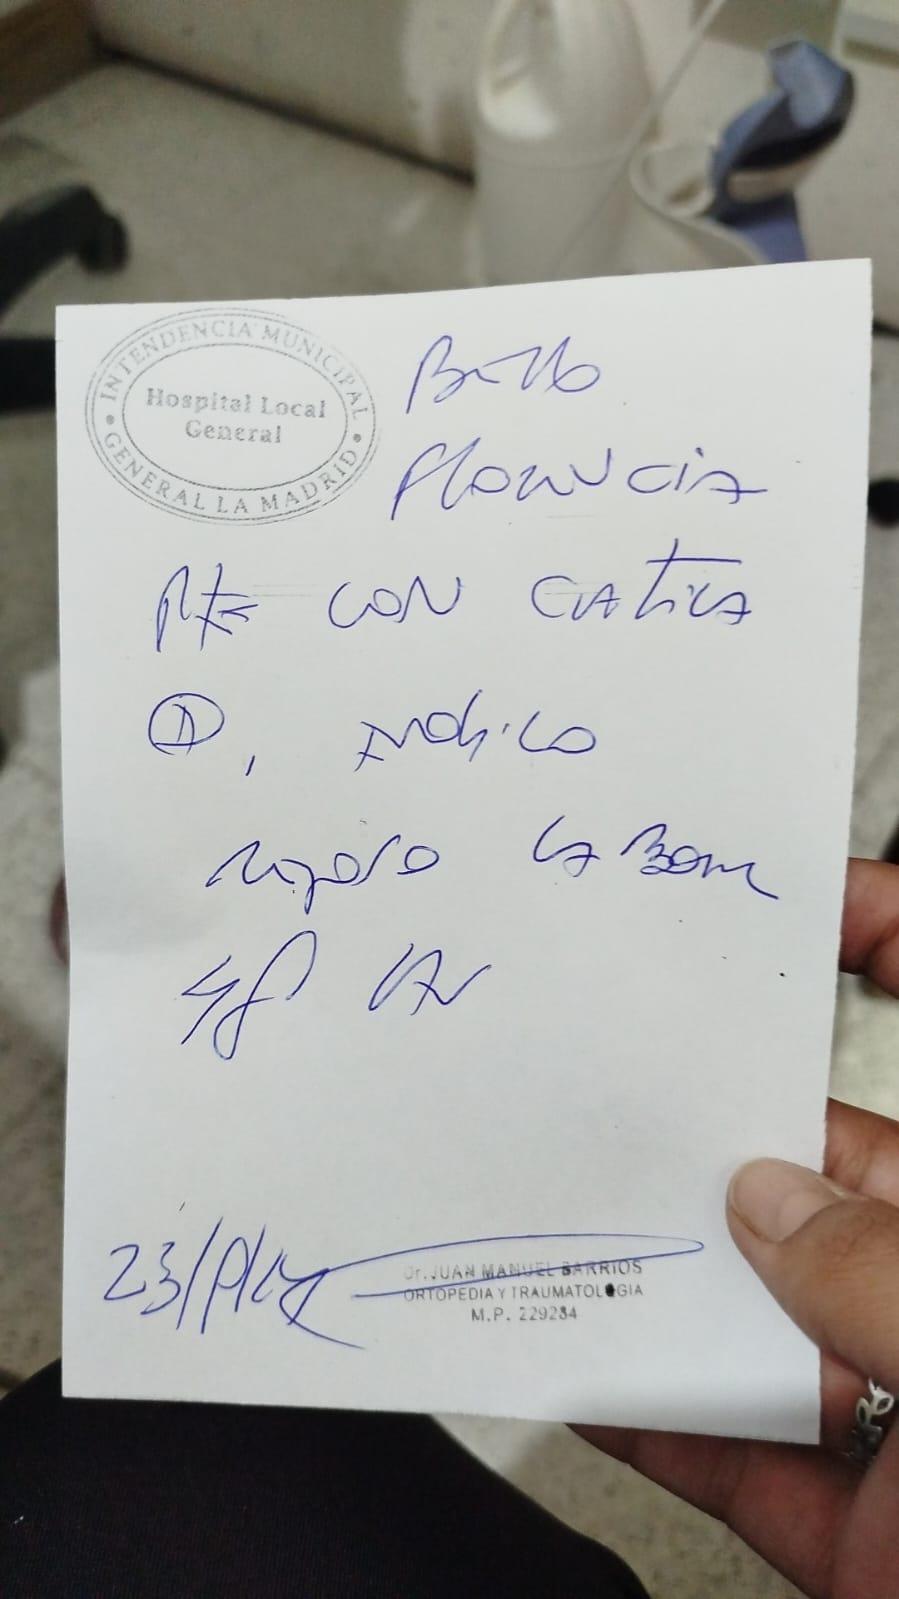 INTENDENCIA MUNICIPAL
Hospital Local
General
GENERAL LA MADRID
Florencia
Pte con ciatica
D, indico
reposo laboral
48
23/
Dr. JUAN MANUEL BARRIOS
ORTOPEDIA Y TRAUMATOLOGIA
M.P. 229284